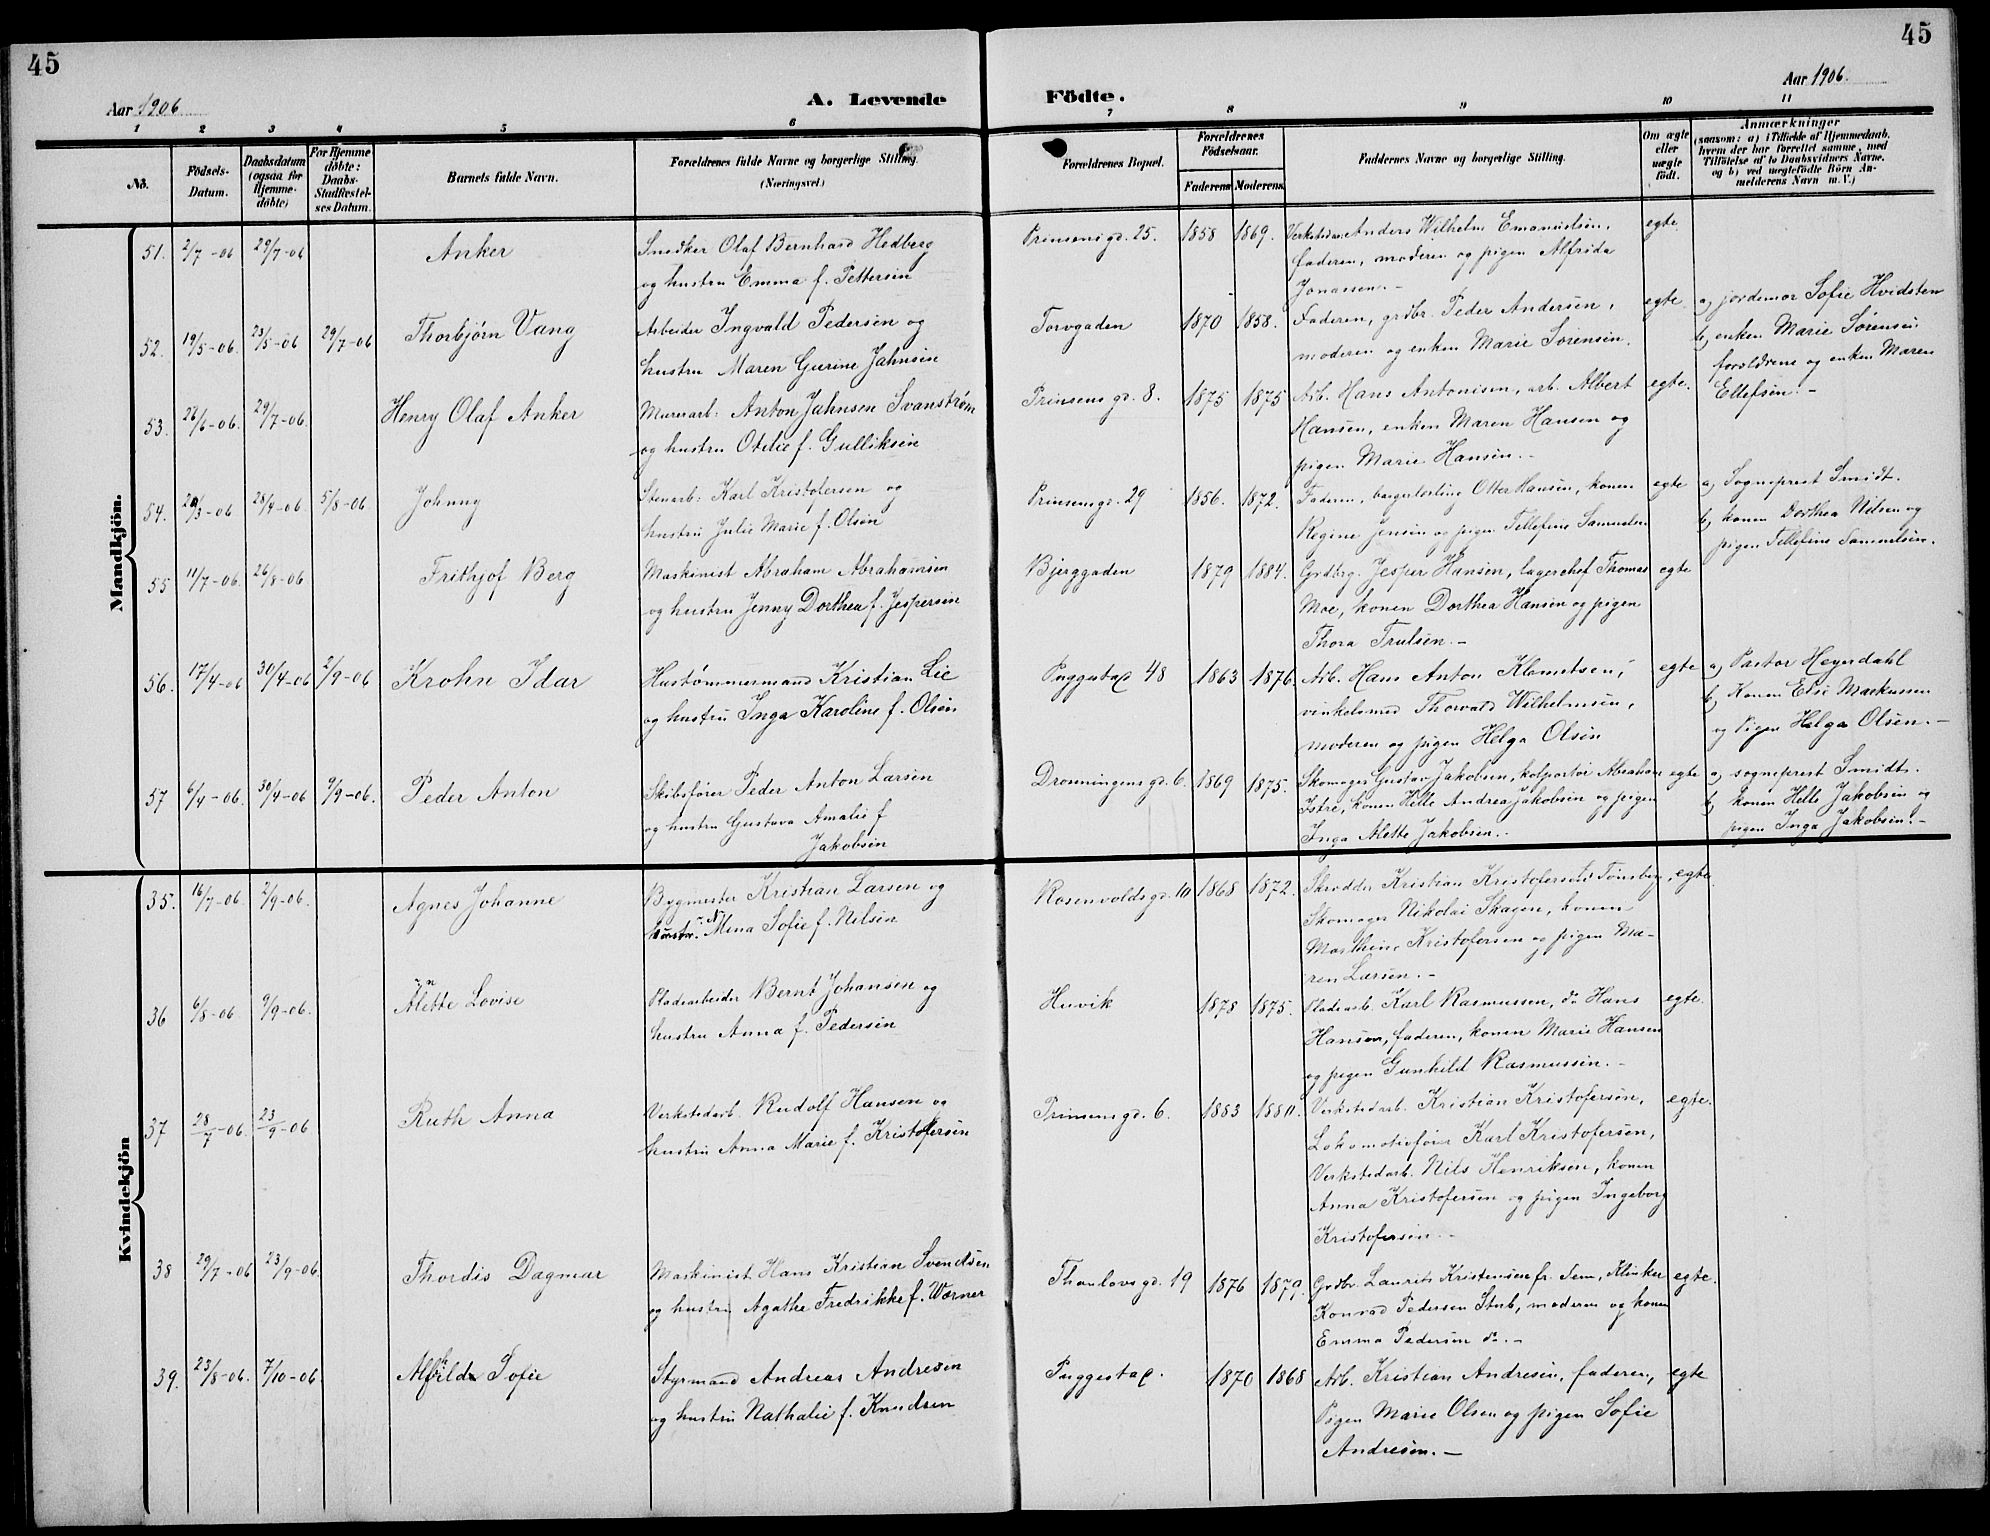 45
45
Aar 1906
A. Levende Födte.
Aar 1906.
1 2 3 4 5 6 7 8 9 10 11
No.
Födsels-
Datum.
Daabsdatum
(ogsaa for
Hjemme-
döbte)
For Hjemme
döbte:
Daabs-
Stadfæstel-
ses Datum.
Barnets fulde Navn.
Forældrenes fulde Navne og borgerlige Stilling.
(Næringsvei.)
Forældrenes Bopæl.
Forældrenes
Födselsaar.
Faderens Moderens
Faddernes Navne og borgerlige Stilling.
Om ægte
eller
uægte
födt.
Anmærkninger
(saasom: a) i Tilfælde af Hjemmedaab,
hvem der har forrettet samme, med
Tilföielse af to Daabsvidners Navne.
og b) ved uægtefödte Börn An-
melderens Navn m. V.)
Mandkjön.
51. 2/7-06 29/7-06 Anker
Snedker Olaf Bernhard Hedberg
og hustru Emma f. Pettersen
Prinsensgd. 25. 1858 1869.
Verkstedar. Anders Wilhelm Emanuelsen,
faderen, moderen og pigen Alfrida
Jonassen.-
egte
52. 19/5-06. 23/5-06 29/7-06 Thorbjørn Vang
Arbeider Ingvald Pedersen og
hustru Maren Gurine Jahnsen
Torvgaden 1870 1858.
Faderen, grdbr. Peder Andersen,
moderen og enken Marie Sørensen.
egte
a, jordemor Sofie Hvidsten
b, enken Marie Sørensen
forældrene og enken Maren
Ellefsen.-
53. 26/6-06. 29/7-06. Henry Olaf Anker
Murerarb. Anton Jahnsen Svanstrøm
og hustru Otilie f. Gulliksen
Prinsensgd. 8. 1875 1875
Arb. Hans Antonisen, arb. Albert
Hansen, enken Maren Hansen og
pigen Marie Hansen.-
egte.
54. 28/4-06. 5/8-06. Johnny
Stenarb. Karl Kristofersen og
hustru Julie Marie f. Olsen
Prinsensgd. 29 1856. 1872.
Faderen, Otter Hansen, konen
Regine Jensen og pigen Tellefine Samuelsen
egte
a, Sogneprest Smidt.
b, konen Dorthea Nilsen og
pigen Tellefine Samuelsen.
55 11/7-06. 26/8-06 Frithjof Berg
Maskinist Abraham Abrahamsen
og hustru Jenny Dorthea f. Jespersen
Bjerggaden 1879 1884.
Grdbrg. Jesper Hansen, lagerchef Thomas
Moe, konen Dorthea Hansen og pigen
Thora Trulsen.-
egte
56. 17/4-06 30/4-06 2/9-06 Krohn Idar
Hustømmermand Kristian Lie
og hustru Inga Karoline f. Olsen
Puggestad 48 1863 1876.
Arb. Hans Anton Klemetsen,
Thorvald Wilhelmsen,
moderen og pigen Helga Olsen
egte
a, Pastor Heyerdahl
b, Konen Elise Markussen
og Pigen Helga Olsen.-
57 6/4-06. 30/4-06 9/9-06. Peder Anton
Skibsfører Peder Anton Larsen
og hustru Gustava Amalie f
Jakobsen
Dronningensgd. 6. 1869 1875.
Skomager Gustav Jakobsen, kolportør Abraham
Istre, konen Helle Andrea Jakobsen og pigen
Inga Alette Jakobsen.-
egte
a, sogneprest Smidt.
b, konen Helle Jakobsen og
pigen Inga Jakobsen.-
Kvindekjön
35. 16/7-06. 2/9-06. Agnes Johanne
Bygmester Kristian Larsen og
hustru. Mina Sofie f. Nilsen
Rosenvoldsgd. 10 1868 1872.
Skrædder Kristian Kristofersen Tønsberg,
Skomager Nikolai Skagen, konen
Marthine Kristofersen og pigen Ma-
ren Larsen.-
egte.
36 6/8-06 9/9-06. Alette Lovise
Pladearbeider Bernt Johansen og
hustru Anna f. Pedersen
Husvik 1878 1875.
Pladearb. Karl Rasmussen, do Hans
Hanson, faderen, konen Marie Hansen
og pigen Gunhild Rasmussen.-
egte.
37 28/7-06. 23/9-06 Ruth Anna
Verkstedarb. Rudolf Hansen og
hustru Anna Marie f. Kristofersen
Prinsensgd. 6. 1883 1880.
Verkstedarb. Kristian Kristofersen,
Lokomotivfører Karl Kristofersen,
Verkstedarb. Nils Henriksen, konen
Anna Kristofersen og pigen Ingeborg
Kristofersen.-
egte.
38 29/7-06 23/9-06. Thordis Dagmar
Maskinist Hans Kristian Svendsen
og hustru Agathe Fredrikke f. Wærner
Thaulovsgd. 19 1876 1879.
Grdbr. Laurits Kristensen fr. Sem, Klinker
Konrad Pedersen Stub, moderen og konen
Emma Pedersen do.-
egte.
39. 23/8-06. 7/10-06 Alfhild Sofie
Styrmand Andreas Andresen
og hustru Nathalie f. Knudsen
Puggestad. 1870 1868
Arb. Kristian Andresen, faderen,
Pigen Marie Olsen og pigen Sofie
Andresen.-
egte